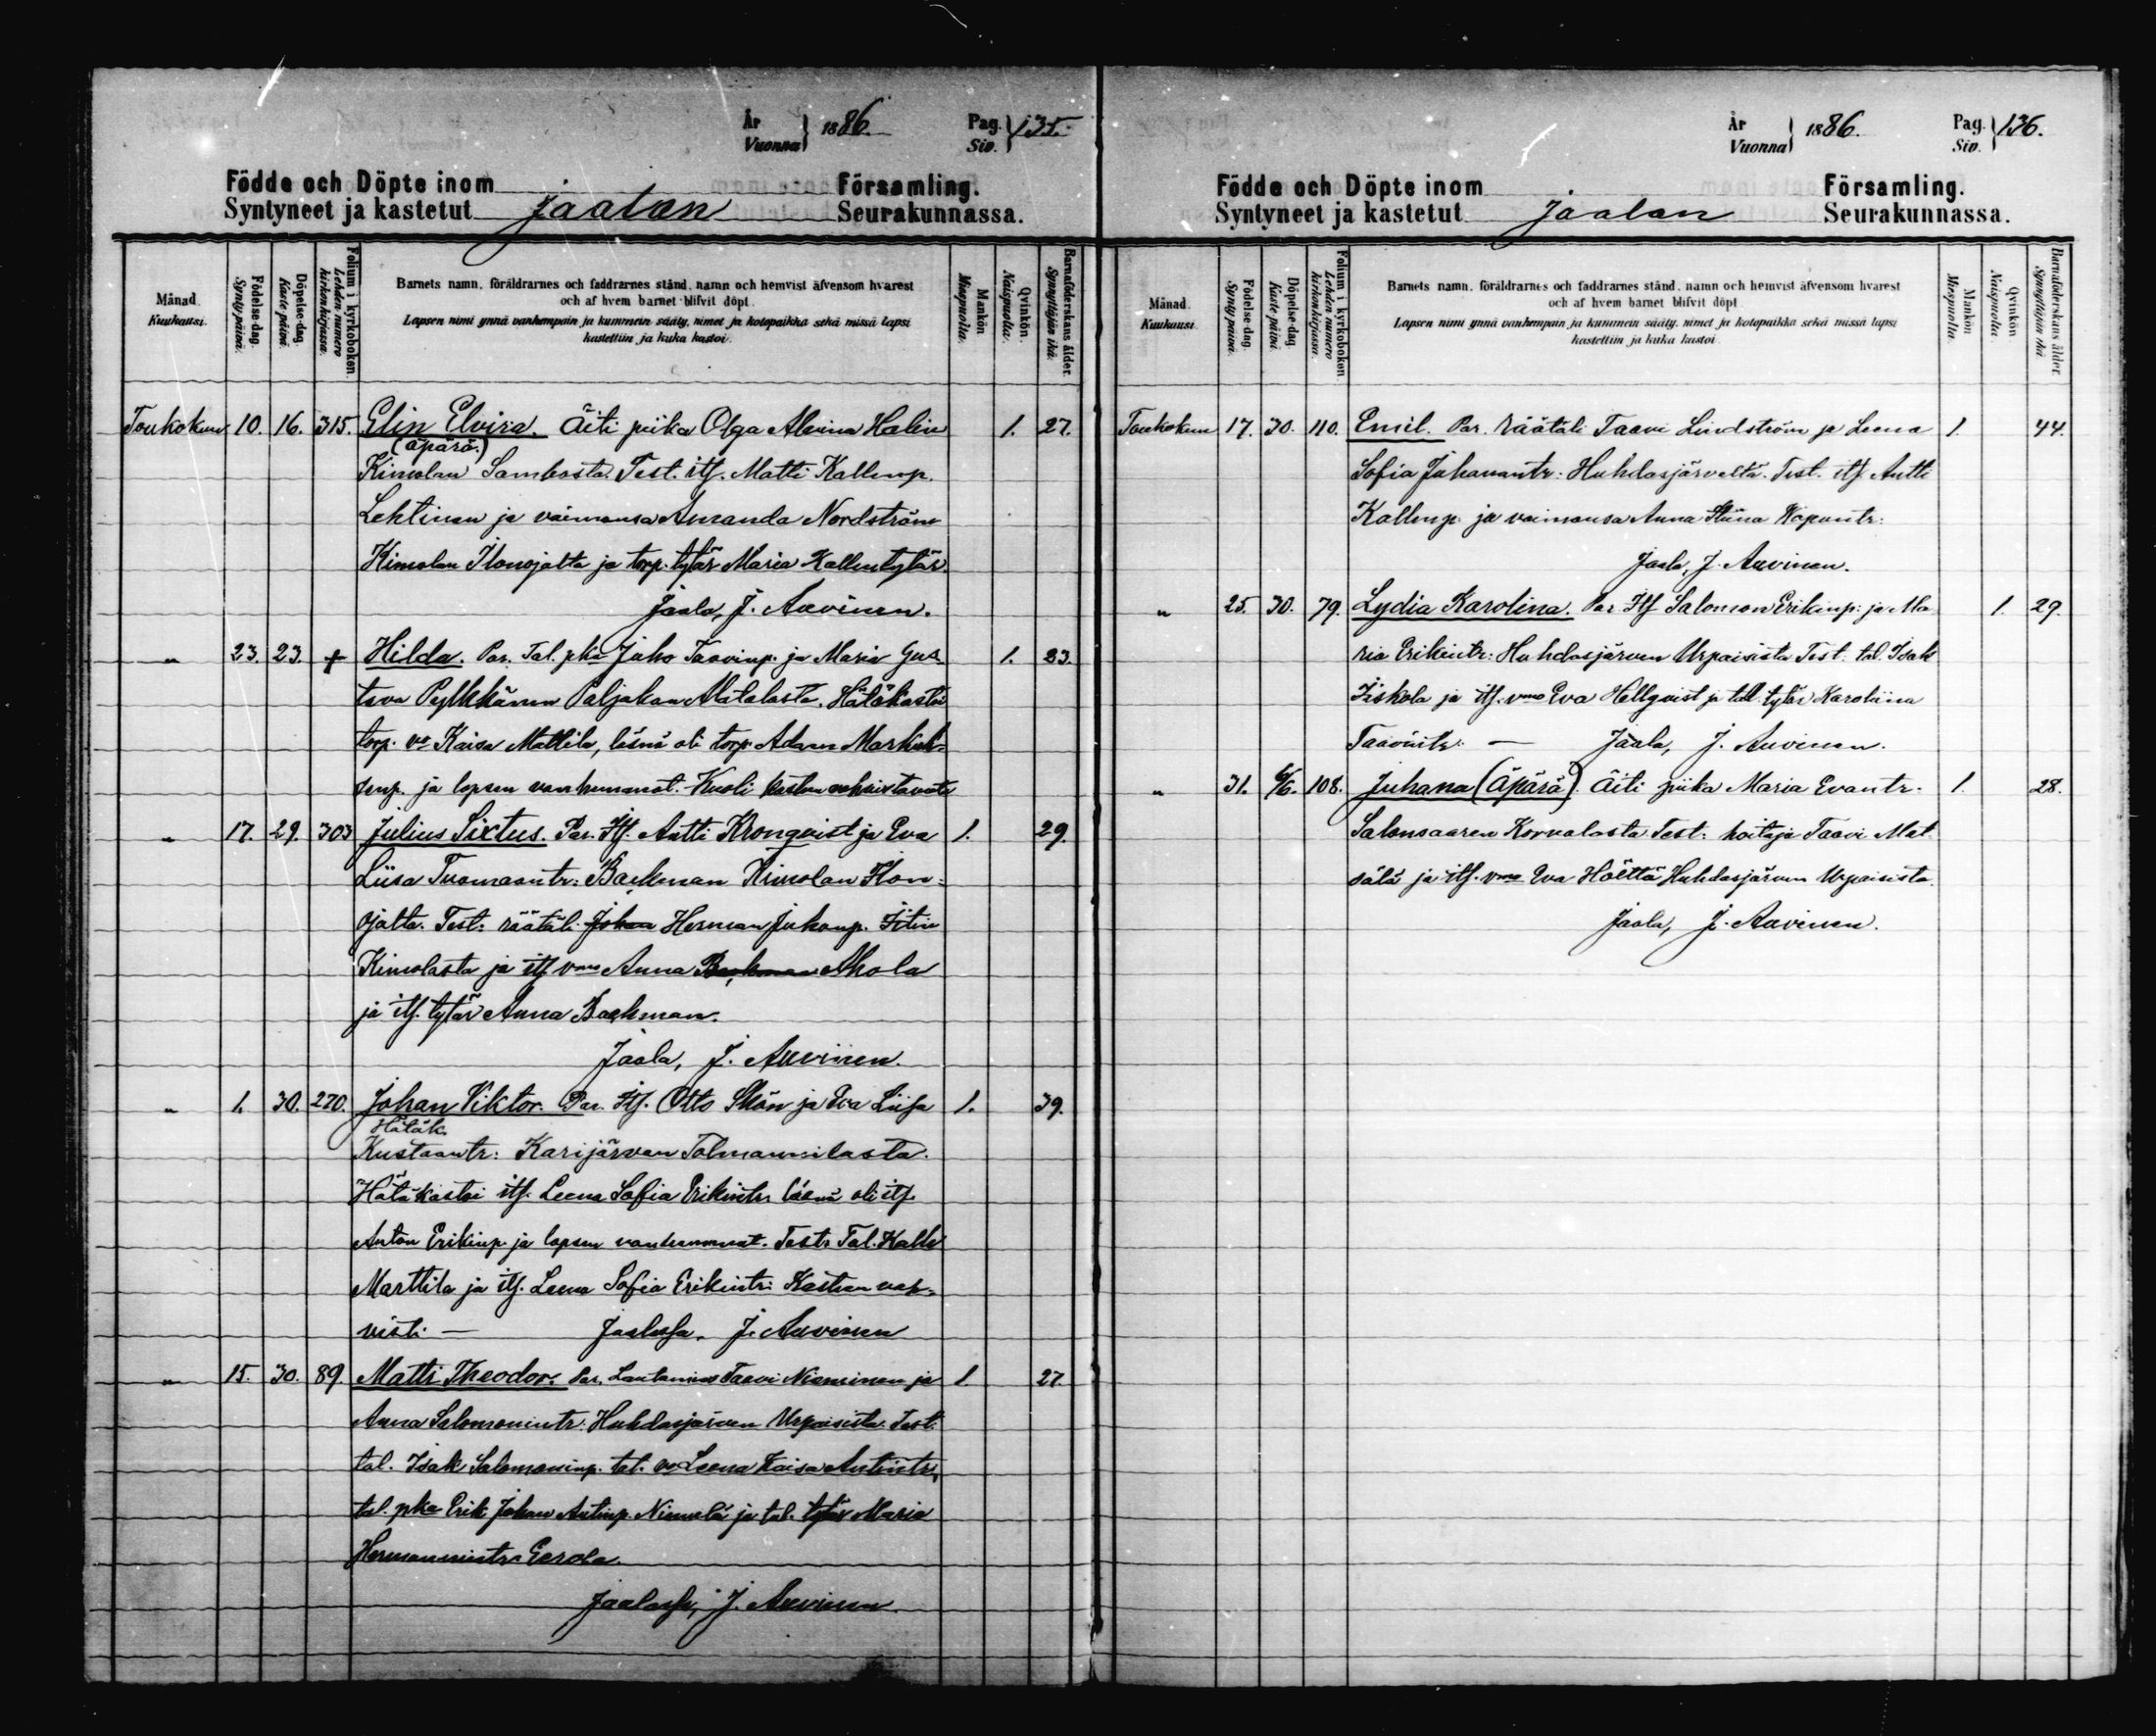 År Vuonna 1886. Pag. Siv. 135.
Födde och Döpte inom Församling.
Syntyneet ja kastetut Jaalan Seurakunnassa.
Månad. Kuukausi. Födelse-dag. Synty-päivä. Döpelse-dag. Kaste-päivä. Folium i kyrkoboken. Lehden numero kirkonkirjassa.
Barnets namn, föräldrarnes och faddrarnes stånd, namn och hemvist äfvensom hvarest
och af hvem barnet blifvit döpt.
Lapsen nimi ynnä vanhempain ja kummein sääty, nimet ja kotopaikka sekä missä lapsi
kastettiin ja kuka kastoi.
Mankön Miespuolia. Qvinkön. Naispuolia. Barnaföderskans ålder. Synnyttäjän ikä.
Toukokuu 10. 16. 315. Elin Elvira. Äiti piika Olga Alviina Halin 1. 27.
(äpärä.)
Kimolan Sambosta. Test. itf. Matti Kallenp.
Lehtinen ja vaimonsa Amanda Nordström
Kimolan Ilonojalta ja torp. tytär Maria Kallentytär.
Jaala, J. Auvinen.
" 23. 23. + Hilda. Par. Tal. pka Juho Taavinp. ja Maria Gus-
tava Pylkkänen Paljakan Alatalosta. Hätäkastoi
torp. vo Kaisa Mattila, läsnä oli torp. Adam Markuk-
senp. ja lapsen vanhemmat. Kuoli kasteen vahvistamata
" 17. 29. 303 Julius Sixtus. Par. Itf. Antti Kronqvist ja Eva 1. 29.
Liisa Tuomaantr. Backman Kimolan Ilon-
ojalta. Test: räätäli Johan Herman Juhonp. Iitin
Kimolasta ja itf. vmo Anna Backman Ahola
ja itf. tytär Anna Backman.
Jaala, J. Auvinen.
" 1. 30. 270. Johan Viktor. Par. Itf. Otto Skön ja Eva Liisa 1. 39.
Hätäk.
Kustaantr: Karijärven Tolmannilasta.
Hätäkastoi itf. Leena Sofia Erikintr. läsnä oli itf.
Anton Erikinp. ja lapsen vanhemmat. Test: Tal. Kalle
Marttila ja itf. Leena Sofia Erikintr: Kasteen vah-
visti — Jaalassa, J. Auvinen
" 15. 30. 89. Matti Theodor. Par. Lautamies Taavi Nieminen ja 1. 27.
Anna Salomonintr. Huhdasjärven Urpaisista. Test.
tal. Isak Salomoninp. tal. vo Leena Kaisa Antintr,
tal. pka Erik Johan Antinp. Niemelä ja tal. tytär Maria
Hermannintr. Eerola.
Jaalassa, J. Auvinen.
År Vuonna 1886. Pag. Siv. 136.
Födde och Döpte inom Församling.
Syntyneet ja kastetut Jaalan Seurakunnassa.
Månad. Kuukausi. Födelse-dag. Synty-päivä. Döpelse-dag. Kaste-päivä. Folium i kyrkoboken. Lehden numero kirkonkirjassa.
Barnets namn, föräldrarnes och faddrarnes stånd, namn och hemvist äfvensom hvarest
och af hvem barnet blifvit döpt.
Lapsen nimi ynnä vanhempain ja kummein sääty, nimet ja kotopaikka sekä missä lapsi
kastettiin ja kuka kastoi.
Mankön Miespuolia. Qvinkön Naispuolia. Barnaföderskans ålder. Synnyttäjän ikä.
Toukokuu 17. 30. 110. Emil. Par. räätäli Taavi Lindström ja Leena 1. 44.
Sofia Juhanantr: Huhdasjärveltä. Test. itf. Antti
Kallenp. ja vaimonsa Anna Stiina
Jaala, J. Auvinen.
" 25. 30. 79. Lydia Karolina. Par. Itf. Salomon Erikinp: ja Ma- 1. 29.
ria Erikintr: Huhdasjärven Urpaisista Test: tal. Isak
Iiskola ja itf. vmo Eva Hellqvist ja tal. tytär Karoliina
Taavintr. — Jaala, J. Auvinen.
" 31. 6/6. 108. Juhana (Äpärä) Äiti piika Maria Evantr. 1. 28.
Salonsaaren Korvalasta Test: hoitaja Taavi Mat-
sälä ja itf. vmo Eva Hölttä Huhdasjärven Urpaisista.
Jaala, J. Auvinen.